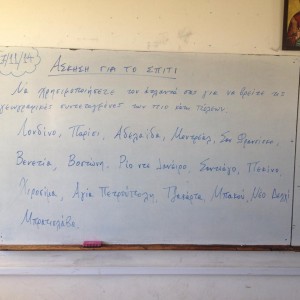 3/11/14 ΑΣΚΗΣΗ ΓΙΑ ΤΟ ΣΠΙΤΙ
Να χρησιμοποιήσετε τον άτλαντά σας για να βρείτε τις
γεωγραφικές συντεταγμένες των πιο κάτω πόλεων.
Λονδίνο, Παρίσι, Αδελαΐδα, Μοντρεάλ, Σαν Φρανσίσκο,
Βενετία, Βοστώνη, Ρίο ντε Ιανέιρο, Σαντιάγο, Πεκίνο,
Χιροσίμα, Αγία Πετρούπολη, Τζακάρτα, Μπακού, Νέο Δελχί
Μπρατισλάβα.